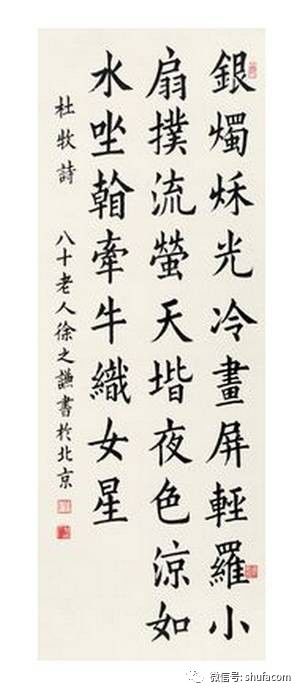 銀燭秌光冷畫屏輕羅小
扇撲流螢天堦夜色涼如
水坐翰牽牛織女星
杜牧詩 八十老人徐之謙書於北京
微信号: shufacom